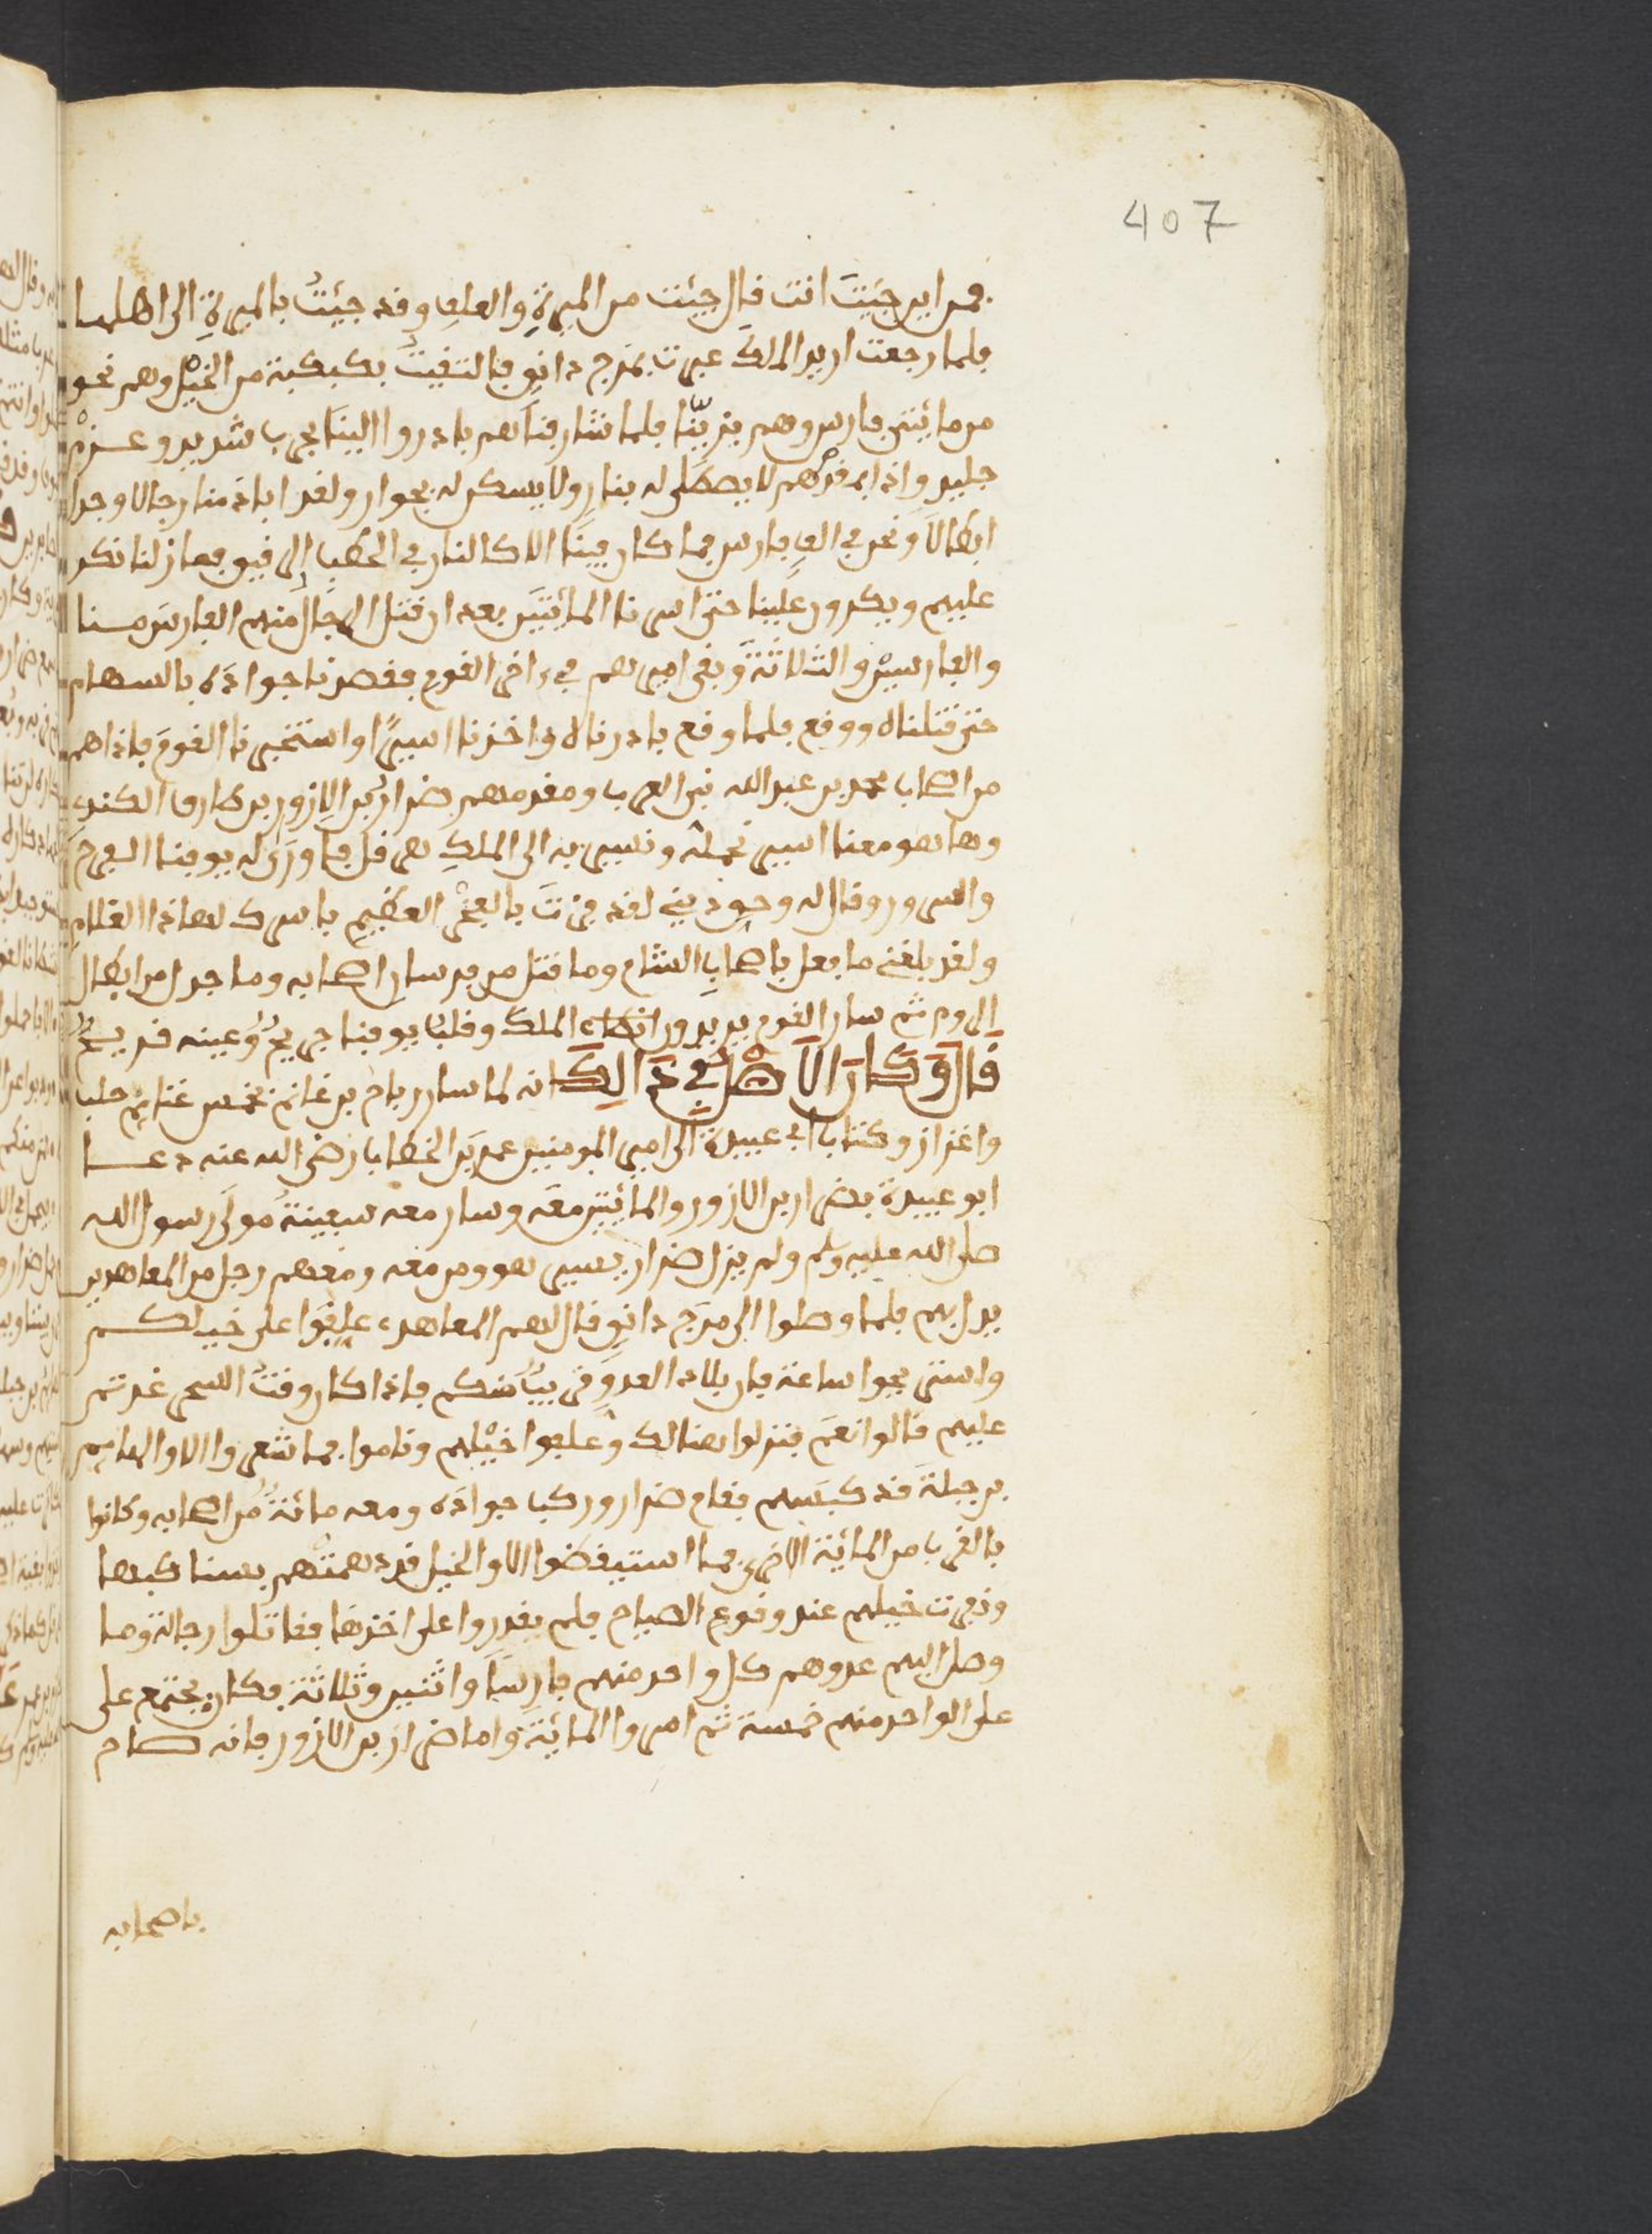 407
فمن اين جيت انت قال جيئت من الميرة والعلف وقد جيئت بالميرة الى اهلها
فلما رجعت اريد الملك عبرت بمرج دابق فالتقيت بكبكبة من الخيل وهم نحو
من مائتي فارس وهم بزينا فلما شارفناهم بادروا الينا بحرب شديد وعزم
جليد واذا بهم لا يصطلى له بنار ولا يسكن له بجوار ولقد اباد منا رجالا وجدل
ابطالا ونحن في الف فارس فما كان بيننا الا كالنار في الحطب الى فيو فما زلنا نكر
عليهم ويكرون علينا حتى اسرنا المائتين بعد ان قتل الرجل منهم الفارس منا
والفارسين والثلاثة وبقى اميرهم في اخر القوم فقصدنا جواده بالسهام
حتى قتلناه ووقع فلما وقع بادرناه واخذناه اسيرا واستخبرنا القوم فاذا هم
من اصحاب محمد بن عبد الله نبي العرب ومقدمهم ضرار بن الازور بن طارق الكندي
وها هو معنا اسير نحمله ونسير به الى الملك هرقل فاورى له يوقنا الفرح
والسرور وقال له وحق ديني لقد فزت بالفخر العظيم باسرك لهاذا الغلام
ولقد بلغني ما فعل باصحاب الشام وما قتل من فرسان اصحابه وما جدل من ابطال
الروم ثم سار القوم يريدون انطاكية الملك وقلب يوقنا جريح وعينه قد يسح
قال وكان الاصل في ذالك انه لما سار رباح بن غانم بخمس غنائم حلب
واعزاز وكتاب ابي عبيدة الى امير المومنين عمر بن الخطاب رضى الله عنه دعا
ابو عبيدة بضرار بن الازور والمائتين معه وسار معه سفينة مولى رسول الله
صلى الله عليه وسلم ولم يزل ضرار يسير هو ومن معه ومعهم رجل من المعاهدين
يدل بهم فلما وصلوا الى مرج دابق قال لهم المعاهد علفوا على خيلكم
واستريحوا ساعة فان بلاد العدو قريب منكم فاذا كان وقت السحر غدتم
عليهم قالوا نعم فنزلوا هنالك وعلفوا خيلهم وناموا فما شعروا الا والهايهم
بن جبلة قد كبسهم فقام ضرار وركب جواده ومعه مائة من اصحابه وكانوا
بالقرب من المائة الاخرى فما استيقضوا الا والخيل قد دهمتهم بسنابكها
ونفرت خيلهم عند وقوع الصياح فلم يقدروا على اخذها فقاتلوا رجالة وما
وصل اليهم عدوهم كل واحد منهم فارسا واثنين وثلاثة فكان يجتمع على
على الواحد منهم خمسة ثم اسروا المائة واما ضرار بن الازور فانه صاح
باصحابه